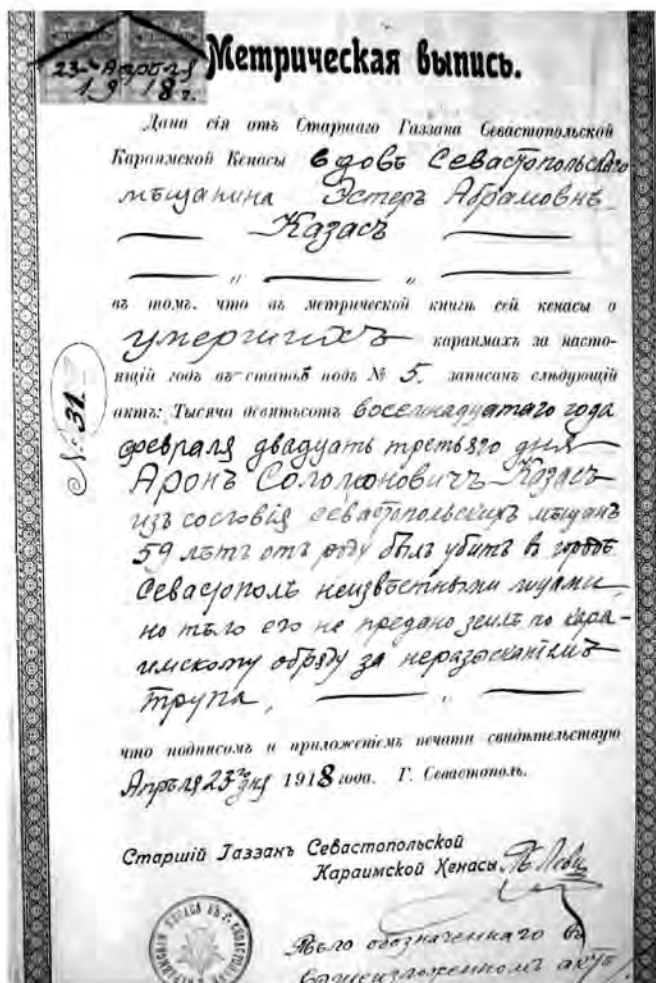 23го Апрѣля
1918 г.
Метрическая выпись.
Дана сія отъ Старшаго Газзана Севастопольской
Караимской Кенасы вдовѣ Севастопольскаго
мѣщанина Эстеръ Абрамовнѣ
Казасъ
въ томъ, что въ метрической книгѣ сей кенасы о
умершихъ караимахъ за насто-
ящій годъ въ статьѣ подъ № 5. записанъ слѣдующій
актъ: Тысяча девятьсотъ восемнадцатаго года
февраля двадцать третьяго дня
Аронъ Соломоновичъ Казасъ
изъ сословія севастопольскихъ мѣщанъ
59 лѣтъ отъ роду былъ убитъ в городѣ
Севастополѣ неизвѣстными лицами,
но тѣло его не предано землѣ по кара-
имскому обряду за неразысканіемъ
трупа,
что подписомъ и приложеніемъ печати свидѣтельствую
Апрѣля 23го дня 1918 года. Г. Севастополь.
№ 31
Старшій Газзанъ Севастопольской
Караимской Кенасы
Тѣло обозначеннаго въ
вышеизложенномъ актѣ